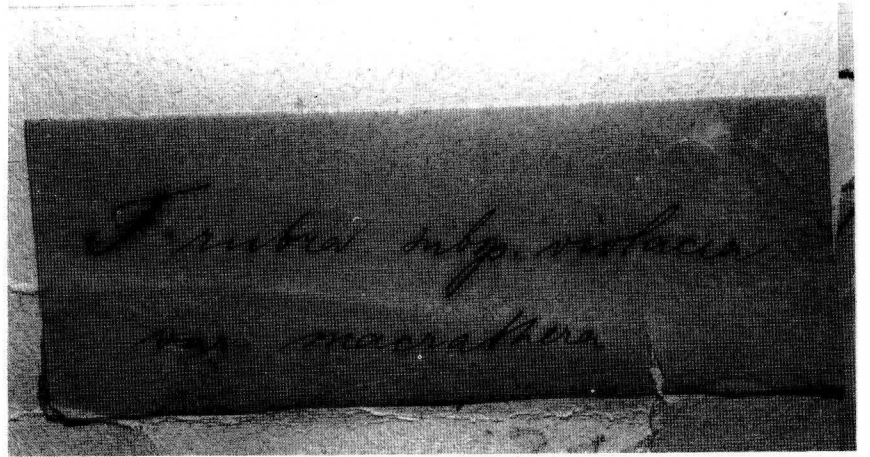 F. rubra subsp. violacea
var. macrathera